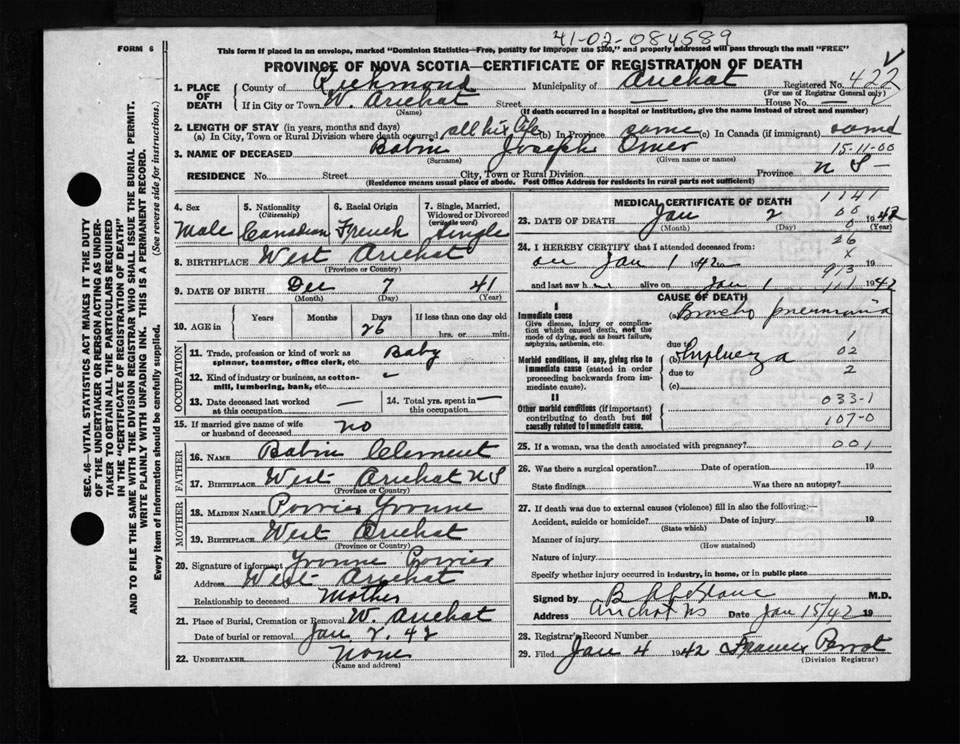 41-02-084589
FORM 6
This form if placed in an envelope, marked "Dominion Statistics—Free, penalty for improper use $300," and properly addressed will pass through the mail "FREE"
PROVINCE OF NOVA SCOTIA—CERTIFICATE OF REGISTRATION OF DEATH
SEC. 46—VITAL STATISTICS ACT MAKES IT THE DUTY
OF THE UNDERTAKER OR PERSON ACTING AS UNDER-
TAKER TO OBTAIN ALL THE PARTICULARS REQUIRED
IN THE "CERTIFICATE OF REGISTRATION OF DEATH"
AND TO FILE THE SAME WITH THE DIVISION REGISTRAR WHO SHALL ISSUE THE BURIAL PERMIT.
WRITE PLAINLY WITH UNFADING INK. THIS IS A PERMANENT RECORD.
Every item of information should be carefully supplied. (See reverse side for instructions.)
1. PLACE OF DEATH County of Richmond Municipality of Arichat Registered No. 422
(For use of Registrar General only)
If in City or Town W. Arichat Street — House No. —
(Name) (If death occurred in a hospital or institution, give the name instead of street and number)
2. LENGTH OF STAY (in years, months and days)
(a) In City, Town or Rural Division where death occurred all his life (b) In Province same (c) In Canada (if immigrant) same
3. NAME OF DECEASED Babin Joseph Omer 15-11-00
(Surname) (Given name or names)
RESIDENCE No. Street City, Town or Rural Division Province N S
(Residence means usual place of abode. Post Office Address for residents in rural parts not sufficient)
4. Sex Male
5. Nationality (Citizenship) Canadian
6. Racial Origin French
7. Single, Married, Widowed or Divorced (write the word) Single
8. BIRTHPLACE West Arichat
(Province or Country)
9. DATE OF BIRTH Dec 7 41
(Month) (Day) (Year)
10. AGE in Years Months Days 26 If less than one day old
hrs. or min.
OCCUPATION
11. Trade, profession or kind of work as spinner, teamster, office clerk, etc. Baby
12. Kind of industry or business, as cotton-mill, lumbering, bank, etc.
13. Date deceased last worked at this occupation —
14. Total yrs. spent in this occupation —
15. If married give name of wife or husband of deceased no
FATHER
16. NAME Babin Clement
17. BIRTHPLACE West Arichat NS
(Province or Country)
MOTHER
18. MAIDEN NAME Poirier Yvonne
19. BIRTHPLACE West Arichat
(Province or Country)
20. Signature of informant Yvonne Poirier
Address West Arichat
Relationship to deceased Mother
21. Place of Burial, Cremation or Removal W. Arichat
Date of burial or removal Jan 2. 42
22. UNDERTAKER None
(Name and address)
MEDICAL CERTIFICATE OF DEATH 1141
23. DATE OF DEATH Jan 2 1942
(Month) (Day) (Year)
00
0
24. I HEREBY CERTIFY that I attended deceased from:
26
on Jan 1 1942 19
X
913
and last saw h alive on Jan 1 1942
111
CAUSE OF DEATH
I
Immediate cause (a) Broncho pneumonia
Give disease, injury or complication which caused death, not the mode of dying, such as heart failure, asphyxia, asthenia, etc.
due to 1
Morbid conditions, if any, giving rise to immediate cause (stated in order proceeding backwards from immediate cause). (b) Influenza 02
due to 2
(c)
II
033-1
Other morbid conditions (if important) contributing to death but not causally related to immediate cause. 107-0
25. If a woman, was the death associated with pregnancy? 001
26. Was there a surgical operation? Date of operation 19
State findings Was there an autopsy?
27. If death was due to external causes (violence) fill in also the following:—
Accident, suicide or homicide? Date of injury 19
(State which)
Manner of injury
(How sustained)
Nature of injury
Specify whether injury occurred in industry, in home, or in public place
Signed by B A LeBlanc M.D.
Address Arichat NS Date Jan 15/42 19
28. Registrar's Record Number
29. Filed Jan 4 1942 Francis
(Division Registrar)